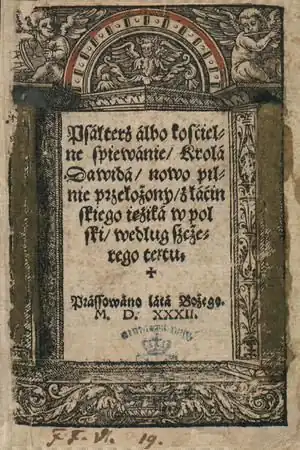 Psałterz albo kościel-
ne śpiewanie/ Krola
Dawida/ nowo pil-
nie przełożony/ z łáciń
skiego ięzika w pol
ski/ według szcże-
rego textu.
Prássowano látá Bożego.
M. D. XXXII.
19.